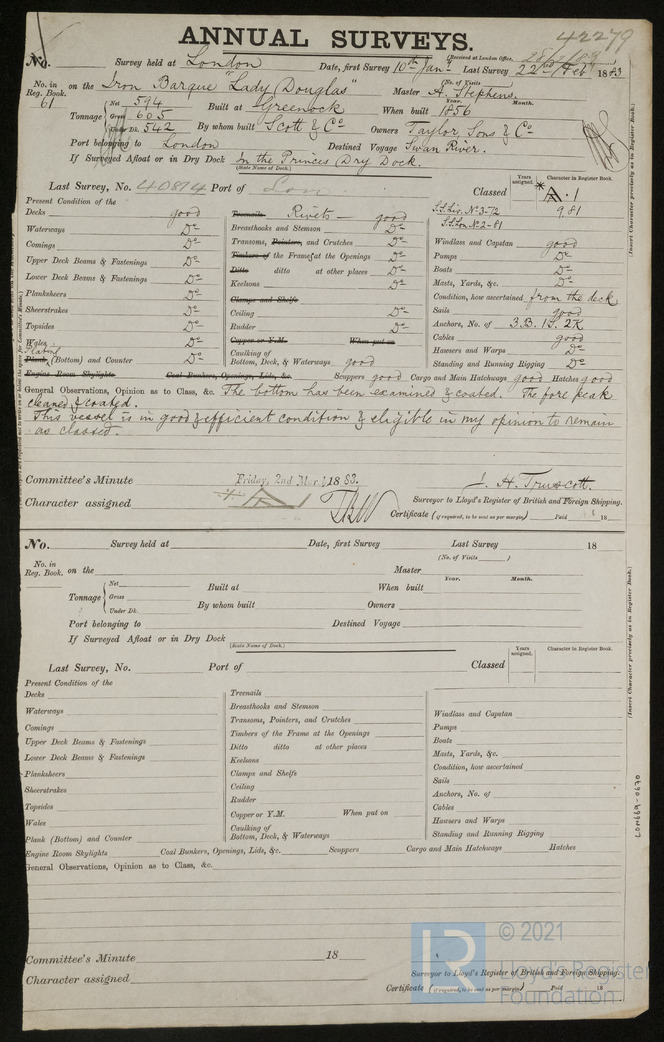 42279
ANNUAL SURVEYS.
(Received at London Office,
No. Survey held at London Date, first Survey 10th Jany Last Survey 22nd Feb 1883
(No. of Visits
No. in Reg. Book. 61 on the Iron Barque "Lady Douglas" Master A. Stephens
Year. Month.
Tonnage Net 594 Built at Greenock When built 1856
Gross 605
Under Dk. 542 By whom built Scott & Co Owners Taylor, Sons & Co
Port belonging to London Destined Voyage Swan River.
If Surveyed Afloat or in Dry Dock In the Princes Dry Dock.
(State Name of Dock.)
Last Survey, No. 40874 Port of Lon Classed Years assigned. Character in Register Book. A · 1
S.S. Liv. No 3-72 9,81
S.S. Lon. No 2-81
Present Condition of the
Decks good Treenails Rivets — good
Waterways Do Breasthooks and Stemson Do
Comings Do Transoms, Pointers, and Crutches Do Windlass and Capstan good
Upper Deck Beams & Fastenings Do Timbers of the Frames at the Openings Do Pumps Do
Lower Deck Beams & Fastenings Do Ditto ditto at other places Do Boats Do
Keelsons Do Masts, Yards, &c. Do
Planksheers Do Clamps and Shelfs Condition, how ascertained from the deck
Sheerstrakes Do Ceiling Do Sails good
Topsides Do Rudder Do Anchors, No. of 3.B. 1S. 2K
Wales Do Copper or Y.M. When put on Cables good
Plank (Bottom) and Counter Do Caulking of Bottom, Deck, & Waterways good Hawsers and Warps Do
Standing and Running Rigging Do
Engine Room Skylights Coal Bunkers, Openings, Lids, &c. Scuppers good Cargo and Main Hatchways good Hatches good
General Observations, Opinion as to Class, &c. The bottom has been examined & coated. The fore peak
cleaned & coated.
This vessel is in good & efficient condition & eligible in my opinion to remain
as classed.
Committee's Minute Friday, 2nd Mar. 1883.
J. H. Truscott.
Character assigned A 1
Surveyor to Lloyd's Register of British and Foreign Shipping.
Certificate (if required, to be sent as per margin) Paid 18
(Insert Character precisely as in Register Book.)
No. Survey held at Date, first Survey Last Survey 18
(No. of Visits )
No. in Reg. Book. on the Master
Year. Month.
Tonnage Net Built at When built
Gross
Under Dk. By whom built Owners
Port belonging to Destined Voyage
If Surveyed Afloat or in Dry Dock
(State Name of Dock.)
Last Survey, No. Port of Classed Years assigned. Character in Register Book.
Present Condition of the
Decks Treenails
Waterways Breasthooks and Stemson Windlass and Capstan
Comings Transoms, Pointers, and Crutches Pumps
Upper Deck Beams & Fastenings Timbers of the Frame at the Openings Boats
Lower Deck Beams & Fastenings Ditto ditto at other places Masts, Yards, &c.
Planksheers Keelsons Condition, how ascertained
Sheerstrakes Clamps and Shelfs Sails
Topsides Ceiling Anchors, No. of
Wales Rudder Cables
Copper or Y.M. When put on Hawsers and Warps
Plank (Bottom) and Counter Caulking of Bottom, Deck, & Waterways Standing and Running Rigging
Engine Room Skylights Coal Bunkers, Openings, Lids, &c. Scuppers Cargo and Main Hatchways Hatches
General Observations, Opinion as to Class, &c.
(Insert Character precisely as in Register Book.)
LON669-0670
Committee's Minute 18
Character assigned
Surveyor to Lloyd's Register of British and Foreign Shipping.
Certificate (if required, to be sent as per margin) Paid 18
© 2021
Lloyd's Register
Foundation